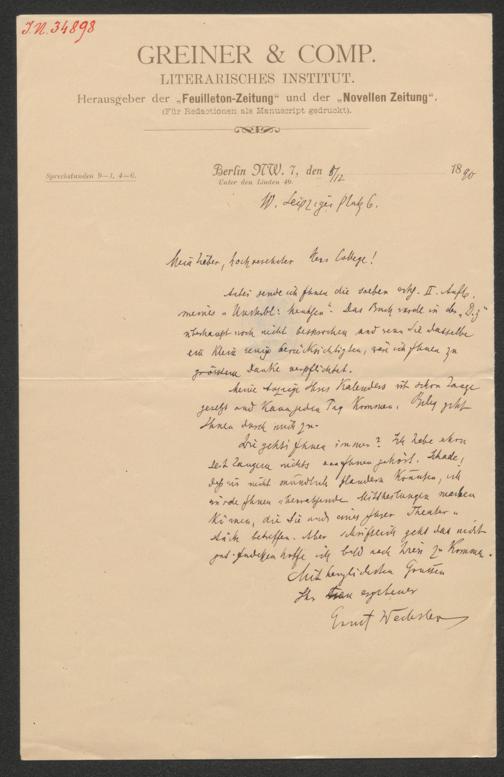 J.N. 34898
GREINER & COMP.
LITERARISCHES INSTITUT.
Herausgeber der „Feuilleton-Zeitung" und der „Novellen Zeitung".
(Für Redactionen als Manuscript gedruckt).
Sprechstunden 9–1, 4–6.
Berlin NW. 7, den 8/12 1890
Unter den Linden 40.
W. Leipziger Platz 6.
Mein lieber, hochverehrter Herr College!
Anbei sende ich Ihnen die soeben II. Aufl.
meines Das Buch wurde in der
überhaupt noch nicht besprochen und wenn Sie dasselbe
ein klein wenig berücksichtigten, wäre ich Ihnen zu
grösstem Danke verpflichtet.
Meine Anzeige Ihres Kalenders ist schon lange
gesetzt und kann jeden Tag kommen. Beleg geht
Ihnen durch mich zu.
Wie gehts Ihnen immer? Ich habe schon
seit langem nichts von Ihnen gehört. Schade,
dass wir nicht mündlich plaudern können, ich
würde Ihnen überraschende Mittheilungen machen
können, die Sie und eines Ihrer Theater-
stücke betreffen. Aber schriftlich geht das nicht
gut. Indessen hoffe ich bald nach Wien zu kommen.
Mit herzlichsten Grüssen
Ihr ergebener
Ernst Wechsler